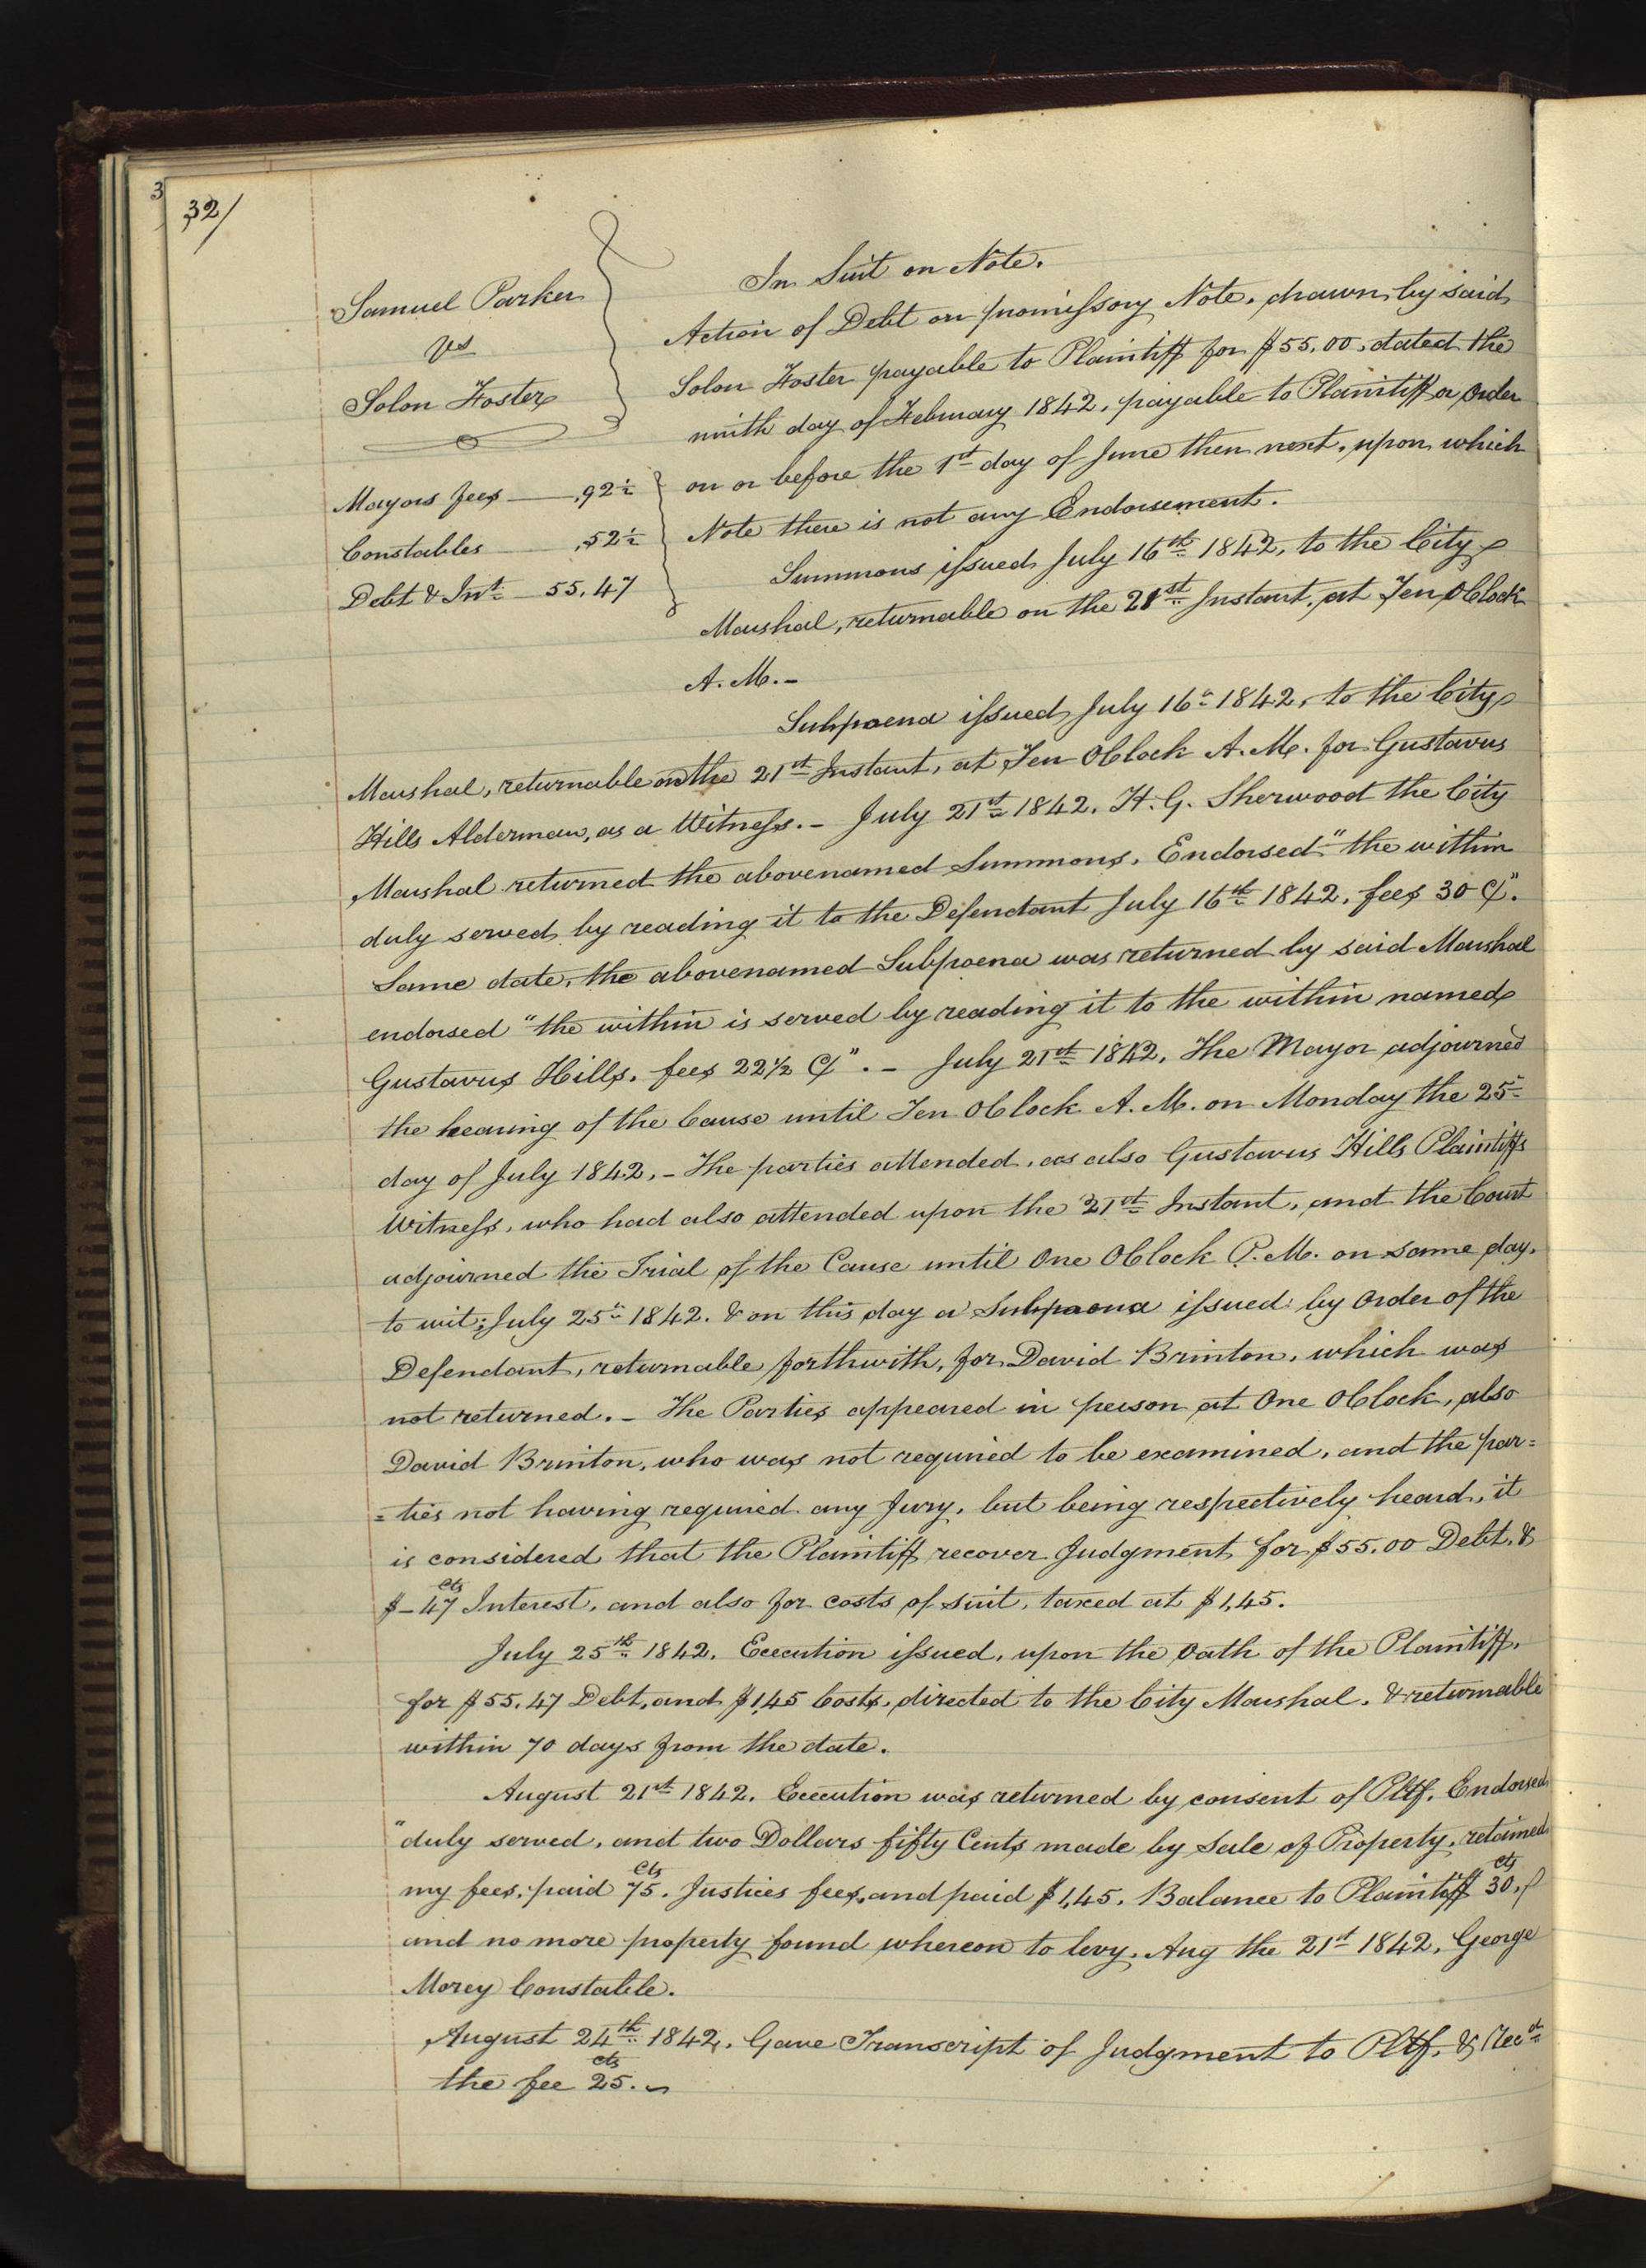 3
32/
Samuel Parker
vs
Solon Foster
Mayors fees — ,92½
Constables — ,52½
Debt & Int. — 55.47
In Suit on Note.
Action of Debt on promissory Note, drawn by said
Solon Foster payable to Plaintiff for $55,00, dated the
ninth day of February 1842, payable to Plaintiff or order
on or before the 1st day of June then next, upon which
Note there is not any Endorsement.
Summons issued July 16th 1842, to the City
Marshal, returnable on the 21st Instant, at Ten oClock
A.M. –
Subpoena issued July 16th 1842, to the City
Marshal, returnable on the 21st Instant, at Ten OClock A.M. for Gustavus
Hills Alderman, as a Witness. – July 21st 1842, H. G. Sherwood the City
Marshal returned the abovenamed Summons, Endorsed "the within
duly served by reading it to the Defendant July 16th 1842, fees 30 C".
Same date, the abovenamed Subpoena was returned by said Marshal
endorsed "the within is served by reading it to the within named
Gustavus Hills, fees 22½ C". – July 21st 1842, The Mayor adjourned
the hearing of the Cause until Ten OClock A.M. on Monday the 25th
day of July 1842, – The parties attended, as also Gustavus Hills Plaintiffs
Witness, who had also attended upon the 21st Instant, and the Court
adjourned the Trial of the Cause until One OClock P.M. on same day,
to wit; July 25th 1842. & on this day a Subpoena issued by Order of the
Defendant, returnable forthwith, for David Brinton, which was
not returned. – The Parties appeared in person at One OClock, also
David Brinton, who was not required to be examined, and the par=
=ties not having required any Jury, but being respectively heard, it
is considered that the Plaintiff recover Judgment for $55.00 Debt, &
$ – 47 cts Interest, and also for costs of suit, taxed at $1,45.
July 25th 1842, Execution issued, upon the Oath of the Plaintiff,
for $55.47 Debt, and $1,45 Costs, directed to the City Marshal, & returnable
within 70 days from the date.
August 21st 1842, Execution was returned by consent of Pltf. Endorsed
"duly served, and two Dollars fifty Cents made by Sale of Property, retained
my fees, paid 75 cts. Justices fees, and paid $1,45. Balance to Plaintiff 30 cts,
and no more property found whereon to levy, Aug the 21st 1842, George
Morey Constable.
August 24th 1842, Gave Transcript of Judgment to Pltf. & Recd
the fee 25 cts.